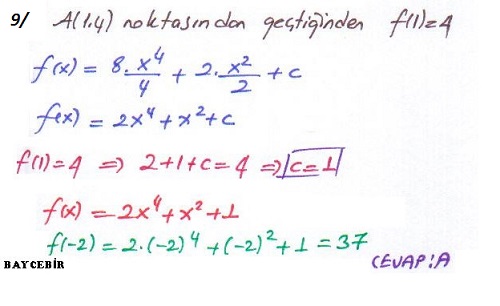 9/ A(1,4) noktasından geçtiğinden f(1)=4
f(x) = 8.x⁴/4 + 2.x²/2 + c
f(x) = 2x⁴+x²+c
f(1)=4 ⇒ 2+1+c=4 ⇒ c=1
f(x) = 2x⁴+x²+1
f(-2) = 2.(-2)⁴+(-2)²+1 = 37
CEVAP:A
BAYCEBİR